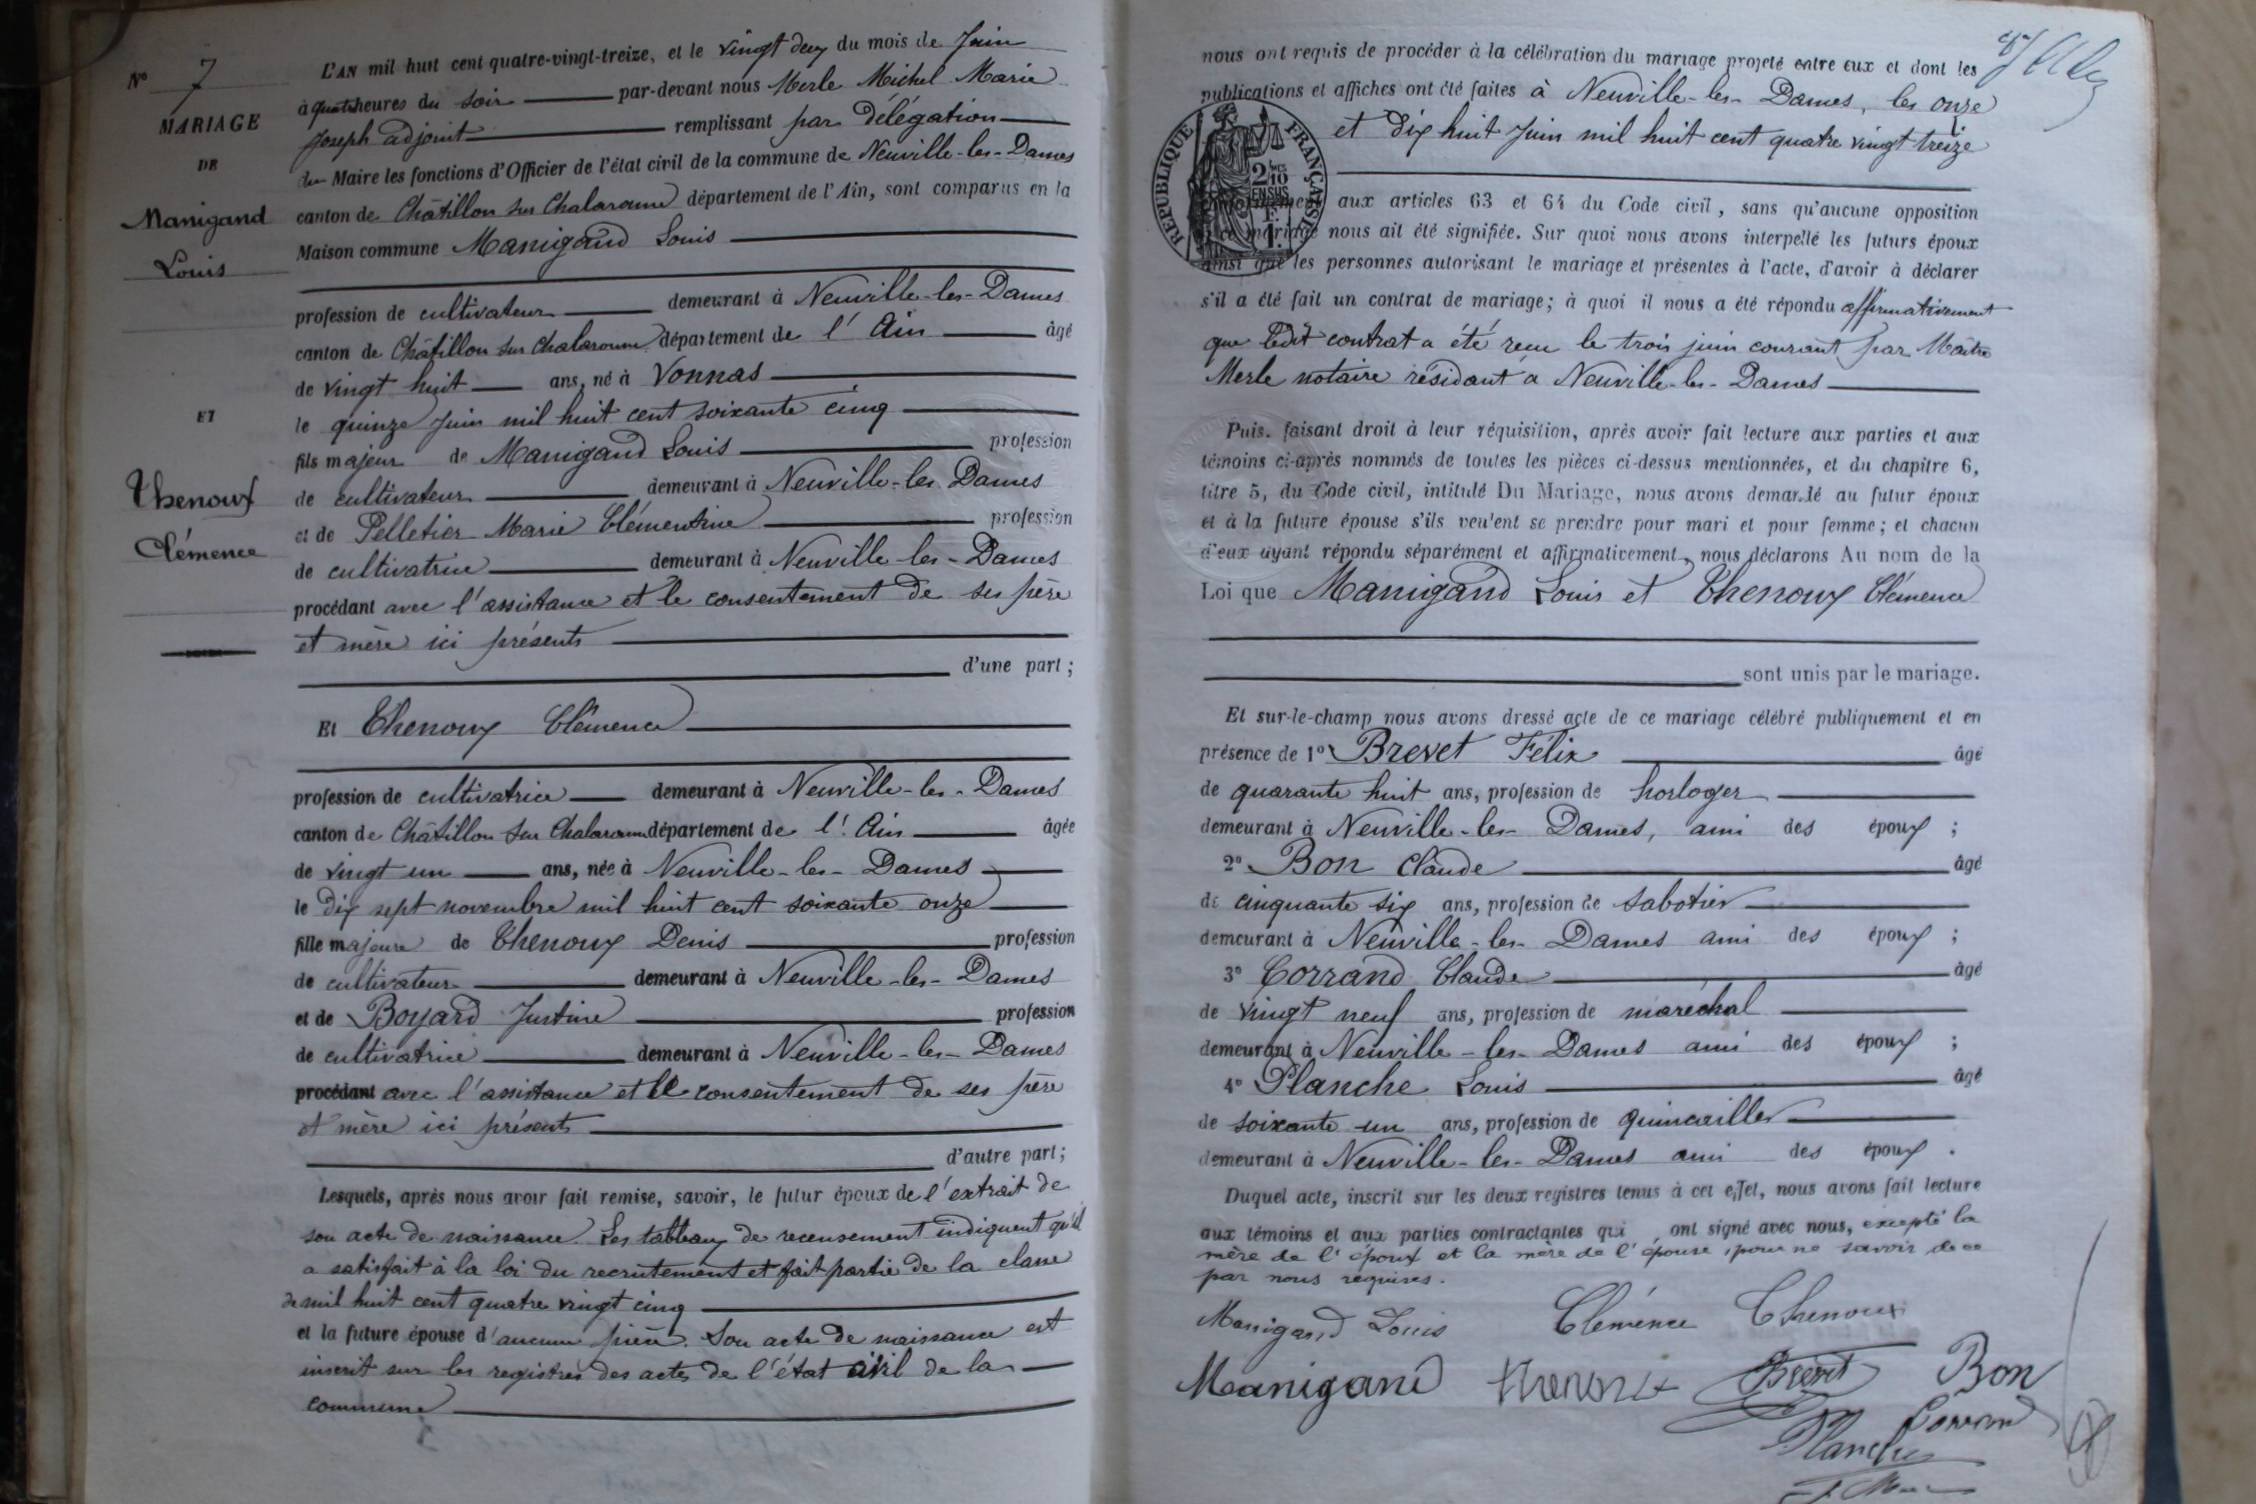 N° 7
MARIAGE
DE
Manigand
Louis
ET
Thenoux
Clémence
L'AN mil huit cent quatre-vingt-treize, et le vingt deux du mois de Juin
à quatre heures du soir par-devant nous Merle Michel Marie
Joseph adjoint remplissant par délégation
du Maire les fonctions d'Officier de l'état civil de la commune de Neuville-les-Dames
canton de Châtillon sur Chalaronne département de l'Ain, sont comparus en la
Maison commune Manigand Louis
profession de cultivateur demeurant à Neuville-les-Dames
canton de Châtillon sur Chalaronne département de l'Ain âgé
de vingt huit ans, né à Vonnas
le quinze Juin mil huit cent soixante cinq
fils majeur de Manigand Louis profession
de cultivateur demeurant à Neuville-les Dames
et de Pelletier Marie Clémentine profession
de cultivatrice demeurant à Neuville les-Dames
procédant avec l'assistance et le consentement de ses père
et mère ici présents
d'une part ;
Et Thenoux Clémence
profession de cultivatrice demeurant à Neuville-les-Dames
canton de Châtillon sur Chalaronne département de l'Ain âgée
de vingt un ans, née à Neuville-les-Dames
le dix sept novembre mil huit cent soixante onze
fille majeure de Thenoux Denis profession
de cultivateur demeurant à Neuville-les-Dames
et de Boyard Justine profession
de cultivatrice demeurant à Neuville-les-Dames
procédant avec l'assistance et le consentement de ses père
et mère ici présents
d'autre part ;
Lesquels, après nous avoir fait remise, savoir, le futur époux de l'extrait de
son acte de naissance. Les tableaux de recensement indiquent qu'il
a satisfait à la loi du recrutement et fait partie de la classe
de mil huit cent quatre vingt cinq
et la future épouse d'aucune pièce. Son acte de naissance est
inscrit sur les registres des actes de l'état civil de la
commune
nous ont requis de procéder à la célébration du mariage projeté entre eux et dont les
publications et affiches ont été faites à Neuville-les-Dames, les onze
et dix huit Juin mil huit cent quatre vingt treize
REPUBLIQUE FRANÇAISE
2/10 EN SUS
conformément aux articles 63 et 64 du Code civil, sans qu'aucune opposition
à ce mariage nous ait été signifiée. Sur quoi nous avons interpellé les futurs époux
ainsi que les personnes autorisant le mariage et présentes à l'acte, d'avoir à déclarer
s'il a été fait un contrat de mariage ; à quoi il nous a été répondu affirmativement
que ledit contrat a été reçu le trois juin courant par Maître
Merle notaire résidant à Neuville-les-Dames
Puis, faisant droit à leur réquisition, après avoir fait lecture aux parties et aux
témoins ci-après nommés de toutes les pièces ci-dessus mentionnées, et du chapitre 6,
titre 5, du Code civil, intitulé Du Mariage, nous avons demandé au futur époux
et à la future épouse s'ils veulent se prendre pour mari et pour femme ; et chacun
d'eux ayant répondu séparément et affirmativement, nous déclarons Au nom de la
Loi que Manigand Louis et Thenoux Clémence
sont unis par le mariage.
Et sur-le-champ nous avons dressé acte de ce mariage célébré publiquement et en
présence de 1° Brevet Félix âgé
de quarante huit ans, profession de horloger
demeurant à Neuville-les-Dames, ami des époux ;
2° Bon Claude âgé
de cinquante six ans, profession de sabotier
demeurant à Neuville-les-Dames ami des époux ;
3° Corrand Claude âgé
de vingt neuf ans, profession de maréchal
demeurant à Neuville-les-Dames ami des époux ;
4° Planche Louis âgé
de soixante un ans, profession de quincailler
demeurant à Neuville-les-Dames ami des époux.
Duquel acte, inscrit sur les deux registres tenus à cet effet, nous avons fait lecture
aux témoins et aux parties contractantes qui ont signé avec nous, excepté la
mère de l'époux et la mère de l'épouse, pour ne savoir de ce
par nous requises.
Manigand Louis Clémence Thenoux
Manigand Thenoux Brevet Bon
Corrand
Planche